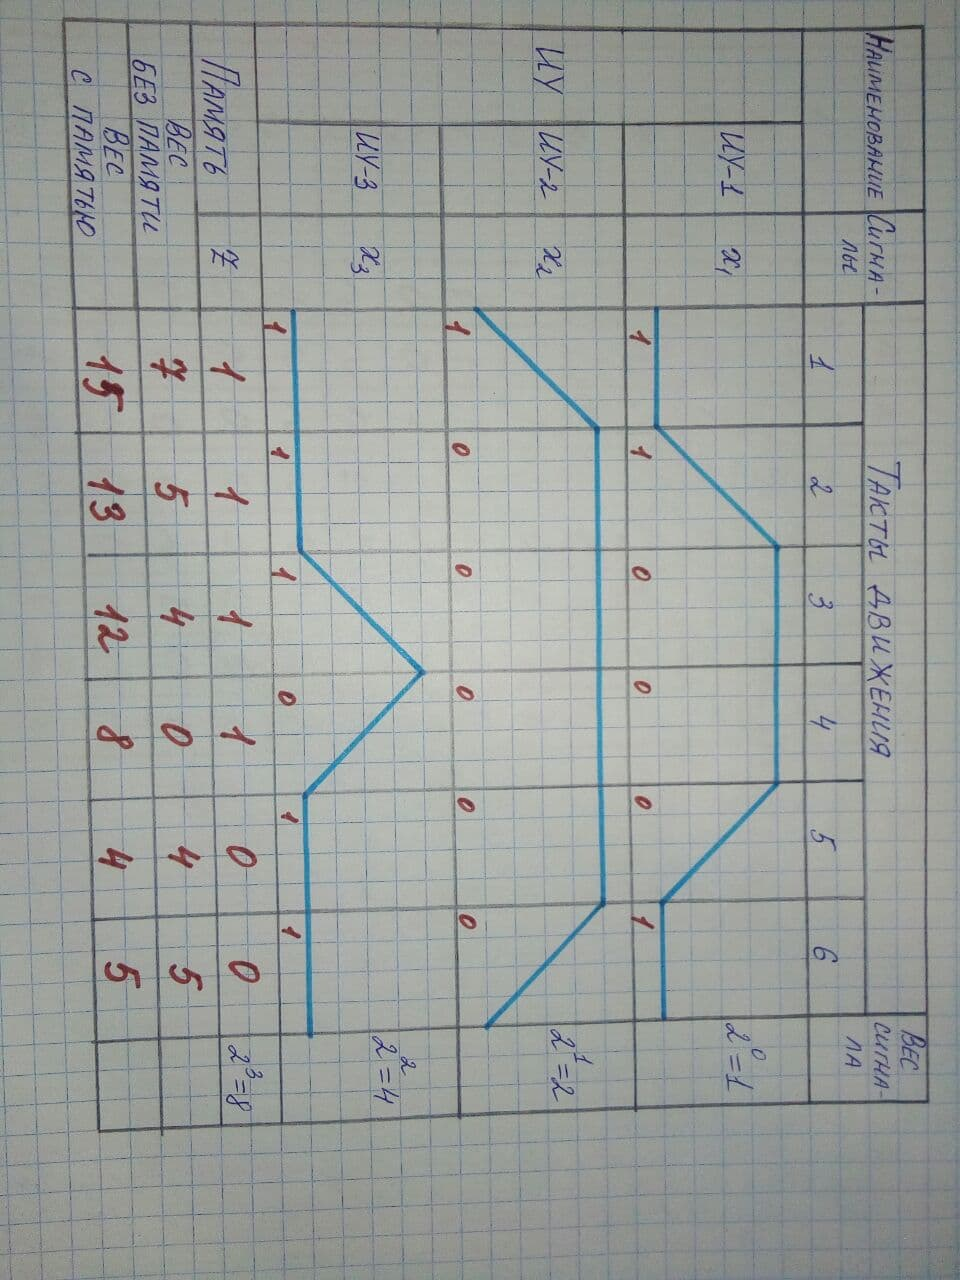 НАИМЕНОВАНИЕ СИГНА-
ЛЫ ТАКТЫ ДВИЖЕНИЯ ВЕС
СИГНА-
ЛА
1 2 3 4 5 6
ИУ ИУ-1 x₁ 2⁰=1
1 1 0 0 0 1
ИУ-2 x₂ 2¹=2
1 0 0 0 0 0
ИУ-3 x₃ 2²=4
1 1 1 0 1 1
ПАМЯТЬ Z 1 1 1 1 0 0 2³=8
ВЕС
БЕЗ ПАМЯТИ 7 5 4 0 4 5
ВЕС
С ПАМЯТЬЮ 15 13 12 8 4 5